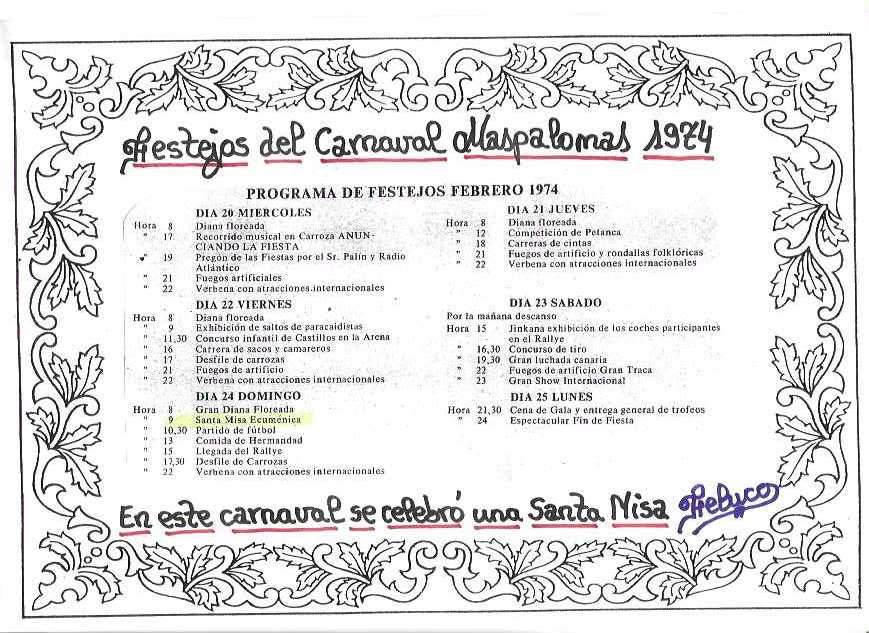 Festejos del Carnaval Maspalomas 1974
PROGRAMA DE FESTEJOS FEBRERO 1974
DIA 20 MIERCOLES
Hora 8 Diana floreada
" 17 Recorrido musical en Carroza ANUN-
CIANDO LA FIESTA
" 19 Pregón de las Fiestas por el Sr. Palín y Radio
Atlántico
" 21 Fuegos artificiales
" 22 Verbena con atracciones internacionales
DIA 21 JUEVES
Hora 8 Diana floreada
" 12 Competición de Petanca
" 18 Carreras de cintas
" 21 Fuegos de artificio y rondallas folklóricas
" 22 Verbena con atracciones internacionales
DIA 22 VIERNES
Hora 8 Diana floreada
" 9 Exhibición de saltos de paracaidistas
" 11,30 Concurso infantil de Castillos en la Arena
" 16 Carrera de sacos y camareros
" 17 Desfile de carrozas
" 21 Fuegos de artificio
" 22 Verbena con atracciones internacionales
DIA 23 SABADO
Por la mañana descanso
Hora 15 Jinkana exhibición de los coches participantes
en el Rallye
" 16,30 Concurso de tiro
" 19,30 Gran luchada canaria
" 22 Fuegos de artificio Gran Traca
" 23 Gran Show Internacional
DIA 24 DOMINGO
Hora 8 Gran Diana Floreada
" 9 Santa Misa Ecuménica
" 10,30 Partido de fútbol
" 13 Comida de Hermandad
" 15 Llegada del Rallye
" 17,30 Desfile de Carrozas
" 22 Verbena con atracciones internacionales
DIA 25 LUNES
Hora 21,30 Cena de Gala y entrega general de trofeos
" 24 Espectacular Fin de Fiesta
En este carnaval se celebró una Santa Misa